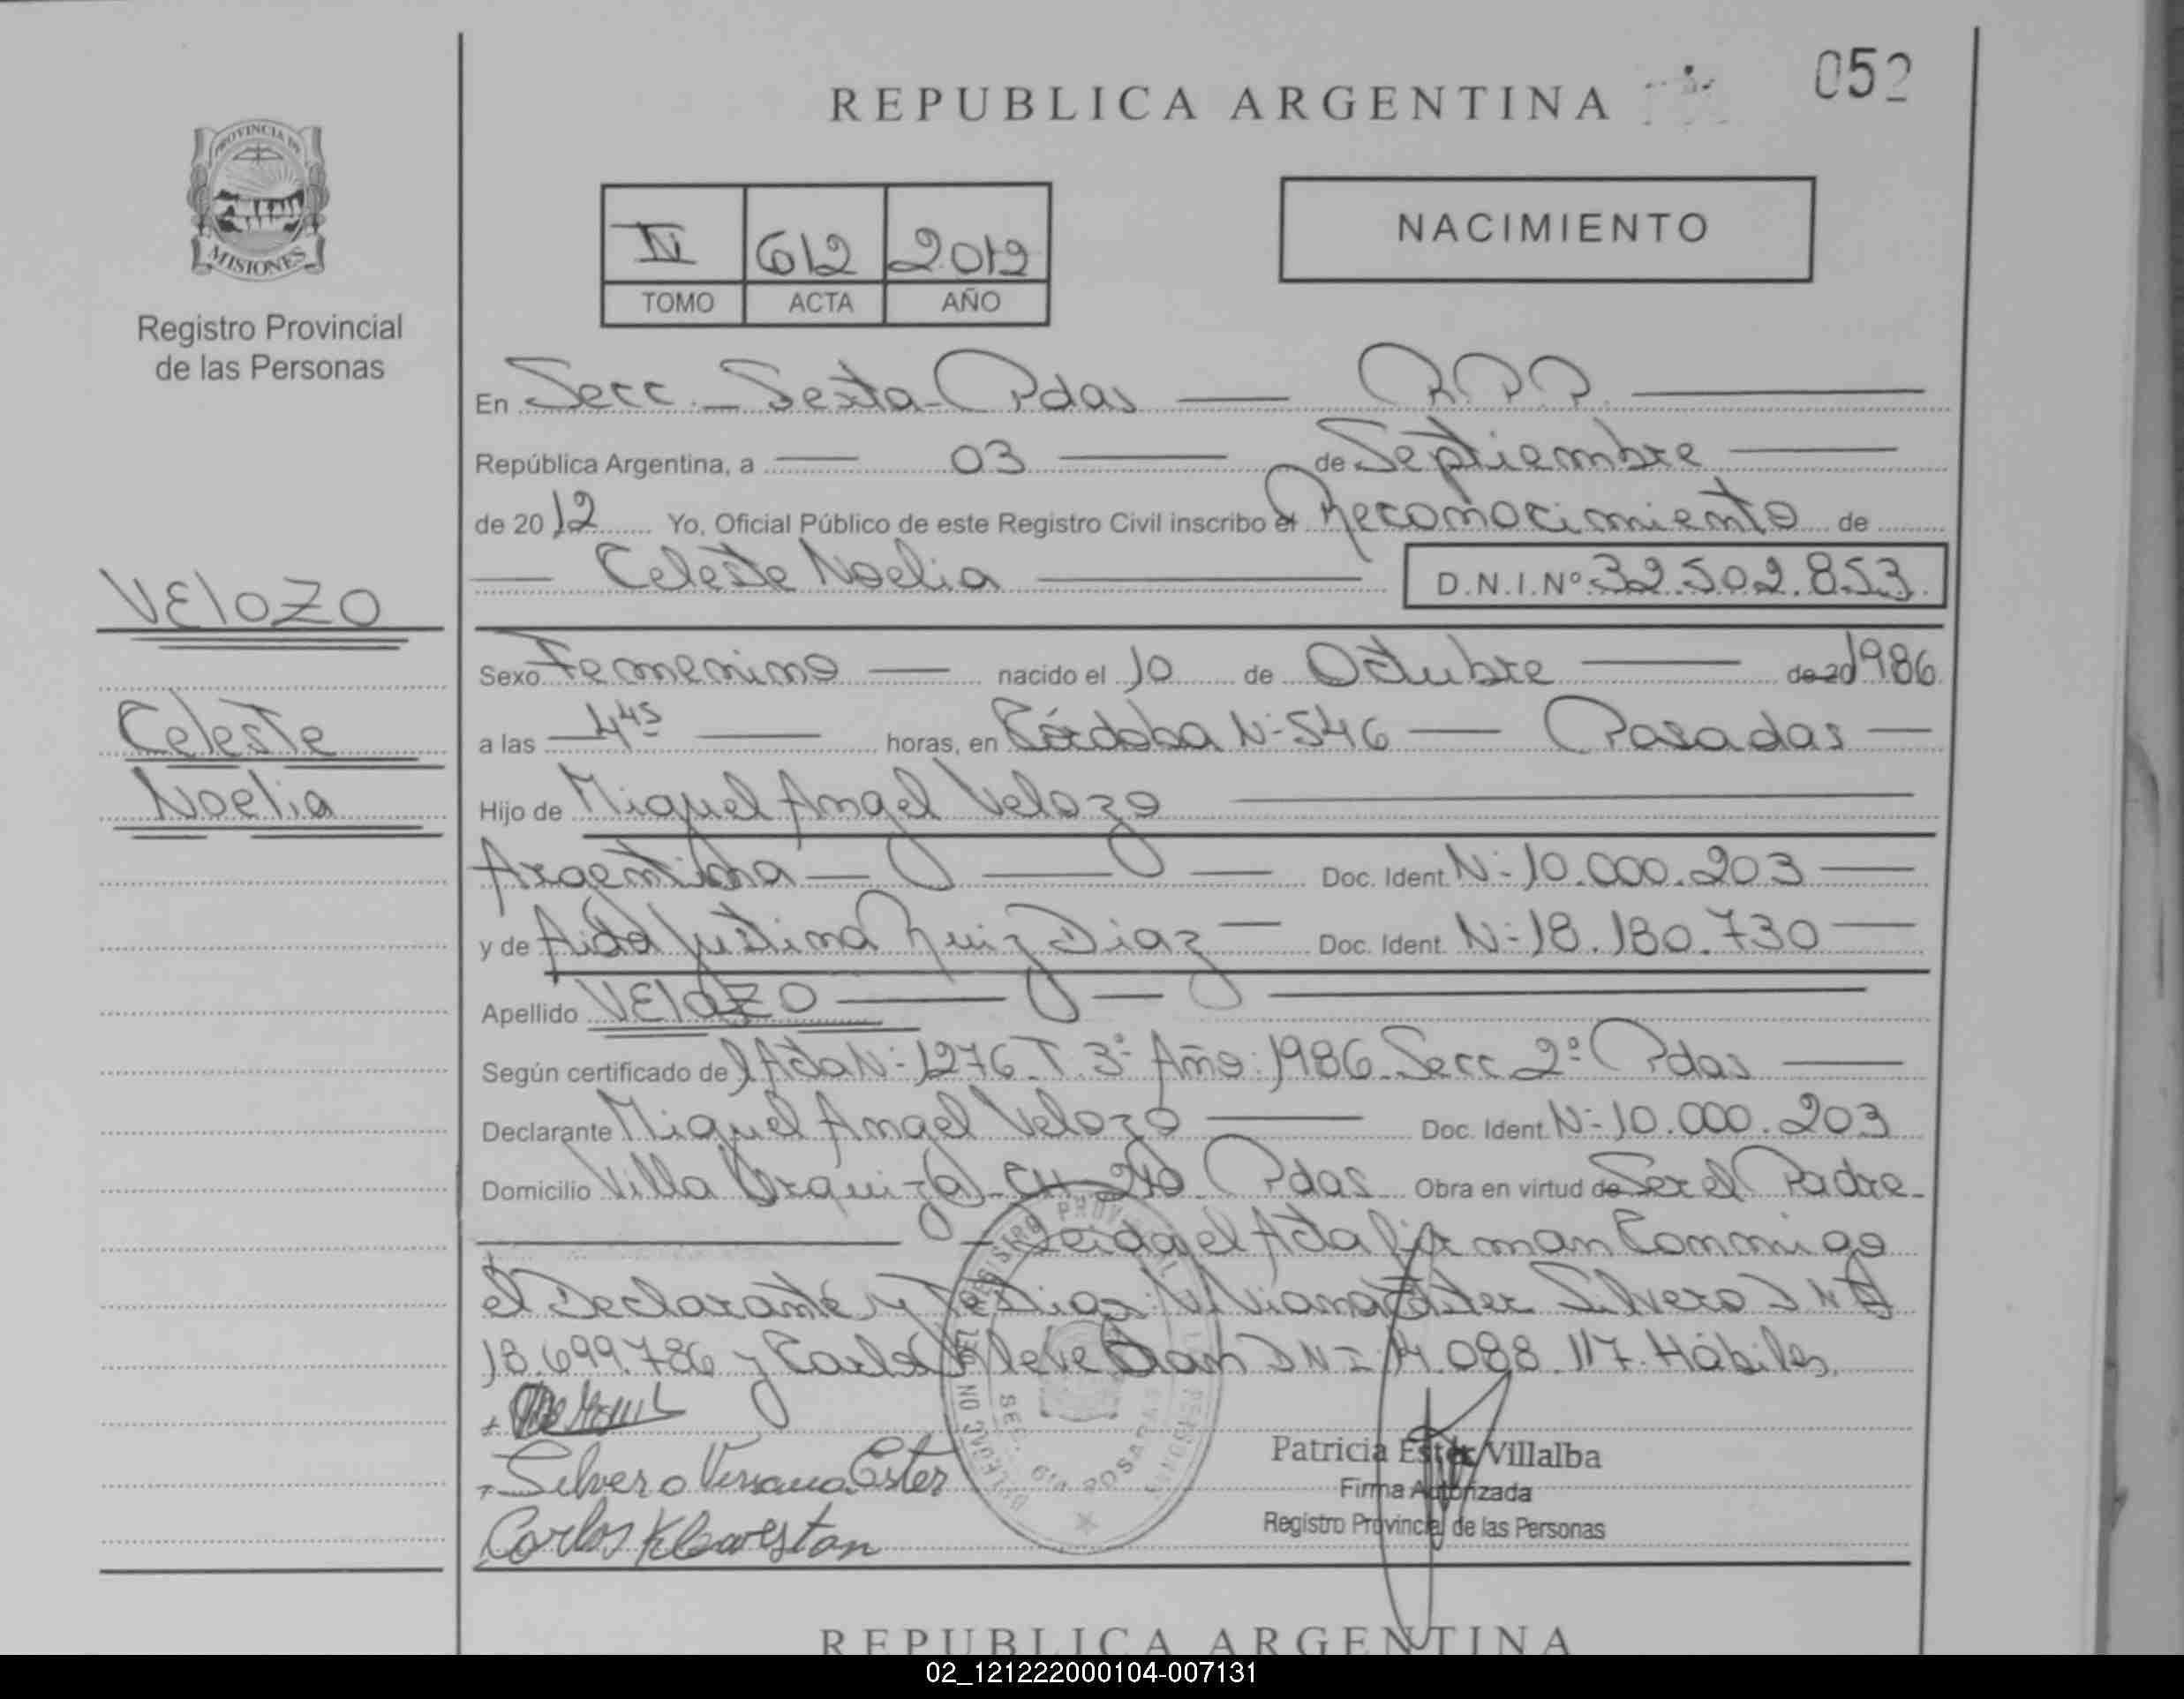 052
REPUBLICA ARGENTINA
PROVINCIA DE
MISIONES
Registro Provincial
de las Personas
NACIMIENTO
612 2012
TOMO ACTA AÑO
En Secc. Sexta - Pdas R.P.P.
República Argentina, a 03 de Septiembre
de 2012 Yo, Oficial Público de este Registro Civil inscribo el Reconocimiento de
Celeste Noelia D.N.I.Nº 32.502.853.
VElOZO
Celeste
Noelia
Sexo Femenino nacido el 10 de Octubre de 20 1986
a las 4 45 horas, en Córdoba N- 546 Posadas
Hijo de Miguel Angel Velozo
Argentina Doc. Ident. N- 10.000.203
y de Aida Justina Ruiz Diaz Doc. Ident. N- 18.180.730
Apellido VElOZO
Según certificado del Acta N- 1276 T. 3º Año: 1986 Secc 2º Pdas
Declarante Miguel Angel Velozo Doc. Ident. N- 10.000.203
Domicilio Villa Urquiza Pdas Obra en virtud de Ser el Padre
Leida el Acta firman Conmigo
el Declarante y Testigos Viviana Ester Silvero DNI
18.699.786 y Carlos DNI 14.088.117 Hábiles.
Silvero Viviana Ester
Carlos
Patricia Ester Villalba
Firma Autorizada
Registro Provincial de las Personas
REPUBLICA ARGENTINA
02_121222000104-007131